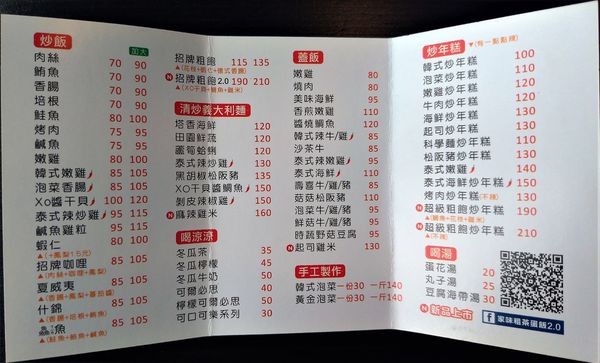 炒飯 加大
肉絲 70 90
鮪魚 70 90
香腸 70 90
培根 70 90
鮭魚 80 100
烤肉 75 95
鹹魚 75 95
嫩雞 80 100
韓式嫩雞 85 105
泡菜香腸 85 105
XO醬干貝 100 120
泰式辣炒雞 95 115
鹹魚雞粒 95 115
蝦仁 80 100
▲(+鳳梨15元)
招牌咖哩 85 105
▲(肉絲+咖哩+鳳梨)
夏威夷 85 105
▲(香腸+鳳梨+蕃茄醬)
什錦 85 105
▲(香腸+培根+鮪魚)
魚 85 105
▲(鮭魚+鮪魚+鹹魚)
招牌粗飽 115 135
N 招牌粗飽2.0 190 210
▲(XO干貝+鯛魚+雞米)
清炒義大利麵
塔香海鮮 120
田園鮮蔬 120
蘆筍蛤蜊 120
泰式辣炒雞 130
黑胡椒松阪豬 135
XO干貝醬鯛魚 150
剝皮辣椒雞 150
N 麻辣雞米 160
喝涼涼
冬瓜茶 35
冬瓜檸檬 45
冬瓜牛奶 50
可爾必思 40
檸檬可爾必思 50
可口可樂系列 30
蓋飯
嫩雞 80
燒肉 80
美味海鮮 95
香煎嫩雞 110
醬燒鯛魚 120
韓式辣牛/雞 85
沙茶牛 85
泰式辣嫩雞 95
泰式海鮮 110
壽喜牛/雞/豬 85
菇菇松阪豬 110
泡菜牛/雞/豬 95
鮮菇牛/雞/豬 95
時蔬野菇豆腐 95
N 起司雞米 130
手工製作
韓式泡菜 一份30 一斤140
黃金泡菜 一份30 一斤140
炒年糕 ▼(有一點點辣)
韓式炒年糕 100
泡菜炒年糕 110
嫩雞炒年糕 120
牛肉炒年糕 120
海鮮炒年糕 130
起司炒年糕 130
科學麵炒年糕 110
松阪豬炒年糕 130
泰式嫩雞 140
泰式海鮮炒年糕 150
烤肉炒年糕(不辣) 130
N 超級粗飽炒年糕 190
N 超級粗飽炒年糕 210
▲(不辣)
喝湯
蛋花湯 20
丸子湯 25
豆腐海帶湯 30
N 新品上市
f 家味粗茶蛋飯2.0